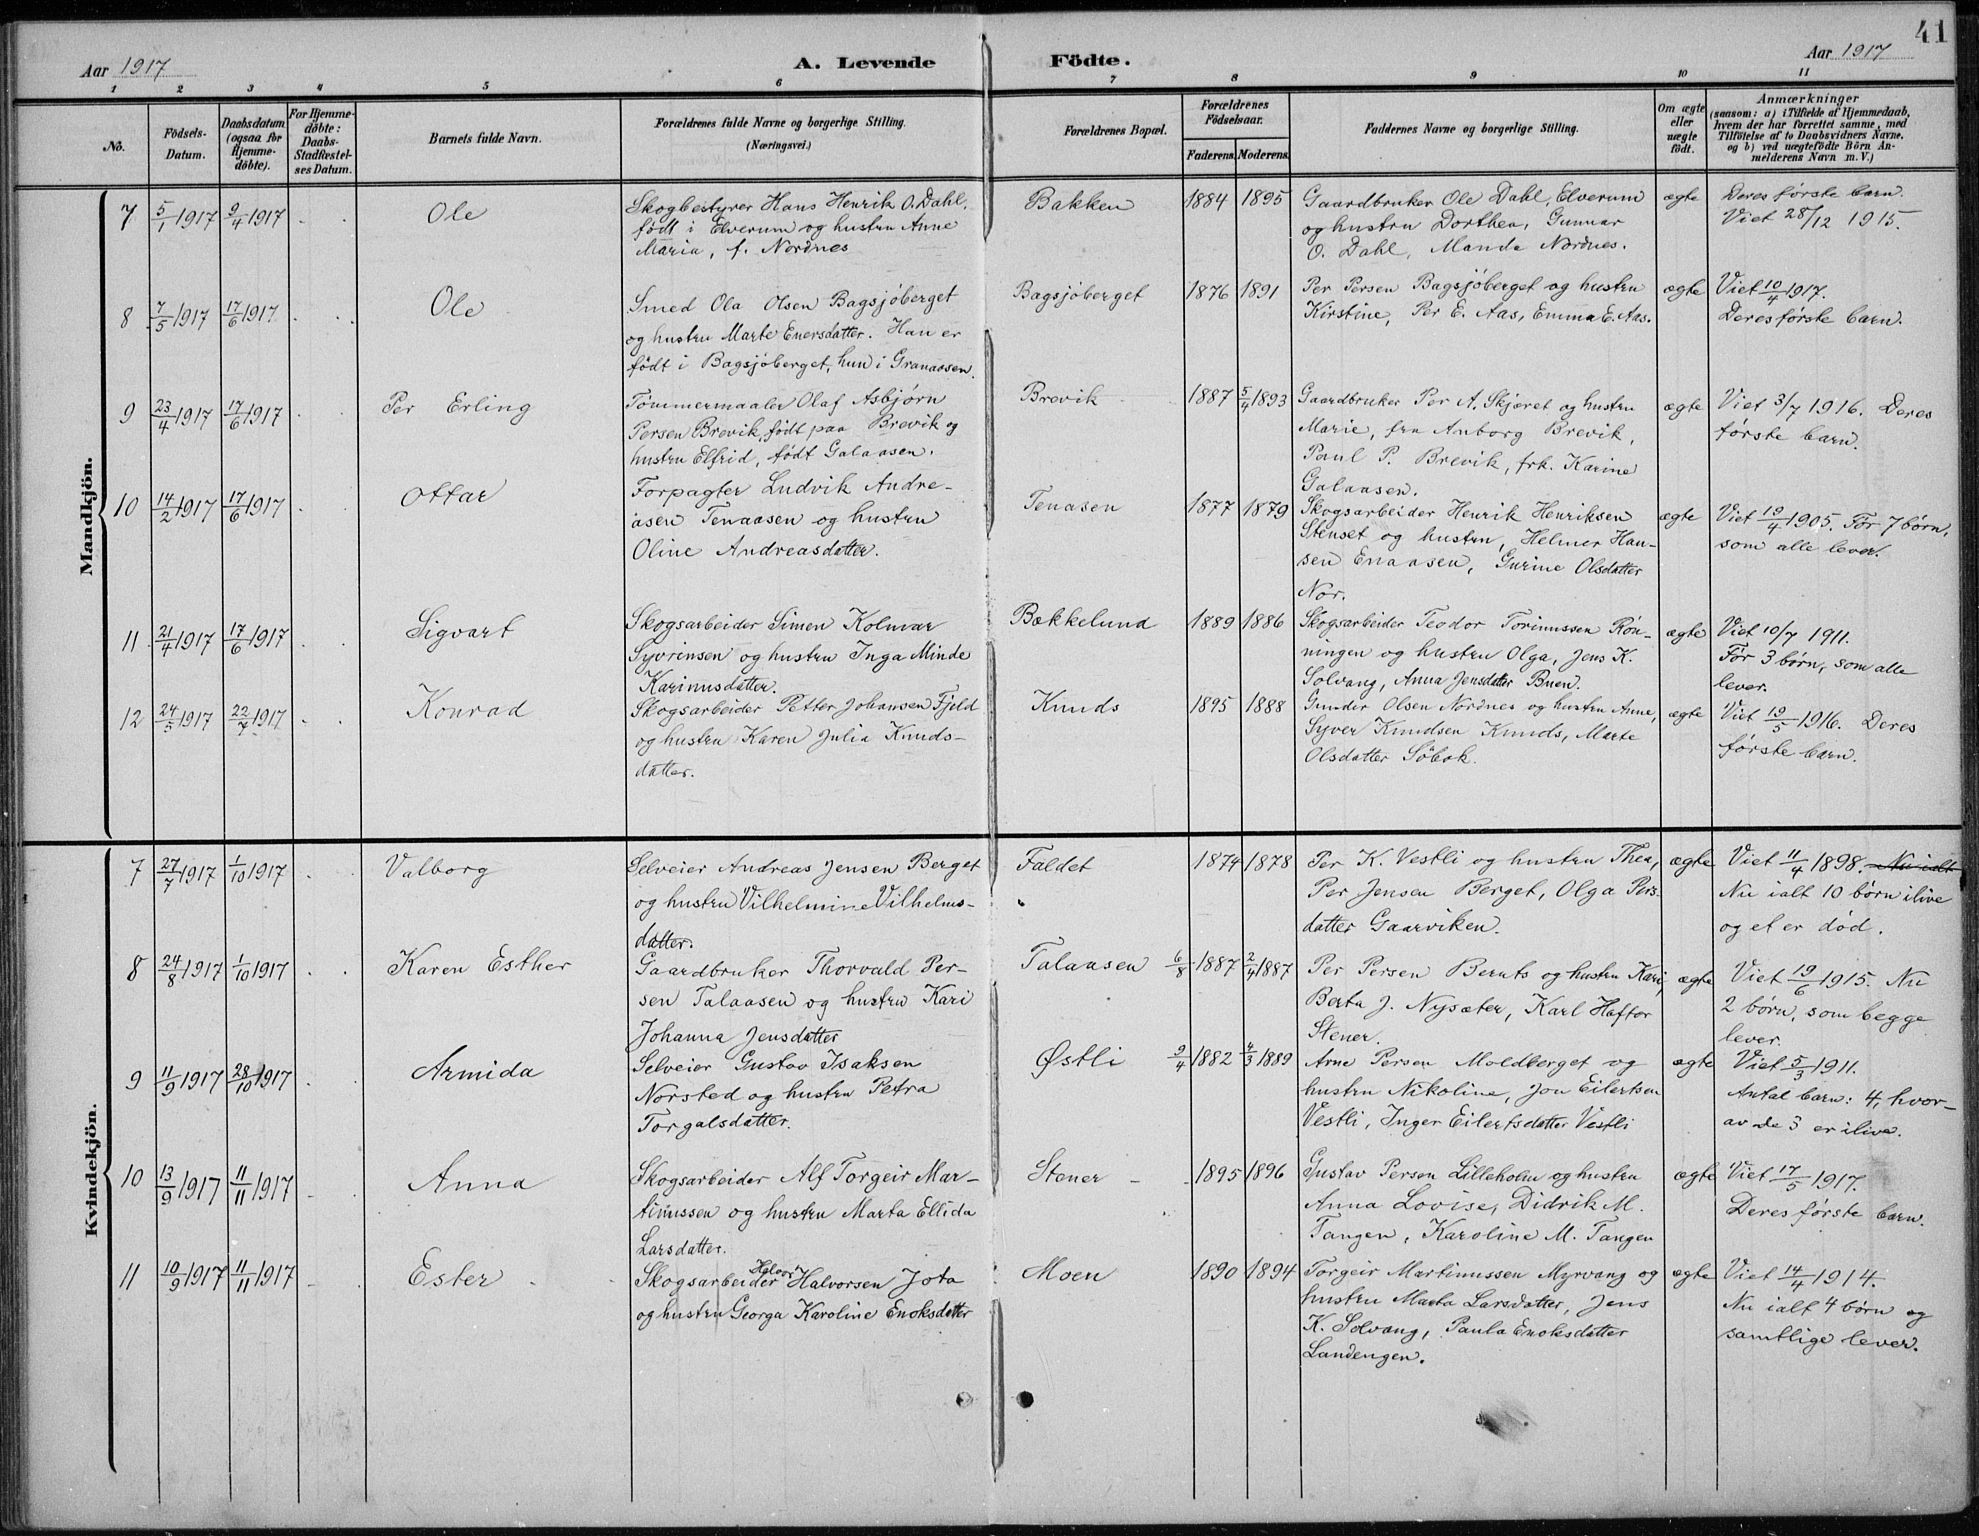 41
Aar 1917
A. Levende Födte.
Aar 1917
1 2 3 4 5 6 7 8 9 10 11
No.
Födsels-
Datum.
Daabsdatum
(ogsaa for
Hjemme-
döbte).
For Hjemme-
döbte:
Daabs-
Stadfæstel-
ses Datum.
Barnets fulde Navn.
Forældrenes fulde Navne og borgerlige Stilling.
(Næringsvei.)
Forældrenes Bopæl.
Forældrenes
Födselsaar.
Faderens. Moderens.
Faddernes Navne og borgerlige Stilling.
Om ægte
eller
uægte
födt.
Anmærkninger
(saasom: a) i Tilfælde af Hjemmedaab,
hvem der har forrettet samme, med
Tilföielse af to Daabsvidners Navne.
og b) ved uægtefödte Börn An-
melderens Navn m. V.)
Mandkjön.
7 5/1 1917 9/4 1917 Ole
Skogbestyrer Hans Henrik O. Dahl,
født i Elverum og hustru Anne
Maria, f. Nordnes
Bakken 1884 1895
Gaardbruker Ole Dahl, Elverum
og hustru Dorthea, Gunnar
O. Dahl, Manda Nordnes.
ægte
Deres første barn.
Viet 28/12 1915.
8 7/5 1917 17/6 1917 Ole
Smed Ola Olsen Bagsjöberget
og hustru Marte Enersdatter. Han er
født i Bagsjöberget, hun i Granaasen.
Bagsjöberget 1876 1891
Per Persen Bagsjöberget og hustru
Kirstine, Per E. Aas, Emma E. Aas.
ægte
Viet 10/4 1917.
Deres første barn.
9 23/4 1917 17/6 1917 Per Erling
Tømmermaaler Olaf Asbjørn
Persen Brevik, født paa Brevik og
hustru Elfrid, født Galaasen.
Brevik 1887 5/4 1893
Gaardbruker Per A. Skjæret og hustru
Marie, fru Anborg Brevik,
Paul P. Brevik, frk. Karine
Galaasen.
ægte
Viet 3/7 1916. Deres
første barn.
10 14/2 1917 17/6 1917 Ottar
Forpagter Ludvik Andre-
asen Tenaasen og hustru
Oline Andreasdatter.
Tenasen 1877 1879
Skogsarbeider Henrik Henriksen
Stenset og hustru, Helmer Han-
sen Enaasen, Gurine Olsdatter
Nor.
ægte
Viet 19/4 1905. Før 7 børn,
som alle lever.
11 21/4 1917 17/6 1917 Sigvart
Skogsarbeider Simen Kolmar
Syvrensen og hustru Inga Minde
Karinusdatter.
Bækkelund 1889 1886
Skogsarbeider Teodor Torinussen Røn-
ningen og hustru Olga, Jens K.
Solvang, Anna Jensdatter Buen.
ægte
Viet 10/7 1911.
Før 3 børn, som alle
lever.
12 24/5 1917 22/7 1917 Konrad
Skogsarbeider Petter Johansen Fjeld
og hustru Karen Julia Knuds-
datter.
Knuds 1895 1888
Gunder Olsen Nordnes og hustru Anne,
Syver Knudsen Knuds, Marte
Olsdatter Söbak.
ægte
Viet 19/5 1916. Deres
første barn.
Kvindekjön.
7 27/7 1917 1/10 1917 Valborg
Selveier Andreas Jensen Berget
og hustru Vilhelmine Vilhelms-
datter.
Faldet 1874 1878
Per K. Vestli og hustru Thea,
Per Jensen Berget, Olga Pers-
datter Gaarviken.
ægte
Viet 11/4 1898. Nu ialt
Nu ialt 10 børn ilive
og et er død.
8 24/8 1917 1/10 1917 Karen Esther
Gaardbruker Thorvald Per-
sen Talaasen og hustru Kari
Johanna Jensdatter
Talaasen 6/8 1887 2/4 1887
Per Persen Bernts og hustru Kari,
Berta J. Nysæter, Karl Haftor
Stener.
ægte
Viet 19/6 1915. Nu
2 børn, som begge
lever.
9 11/9 1917 28/10 1917 Armida
Selveier Gustav Isaksen
Norsted og hustru Petra
Torgalsdatter.
Østli 9/4 1882 4/3 1889
Arne Persen Moldberget og
hustru Nikoline, Jon Eilertsen
Vestli, Inger Eilertsdatter Vestli
ægte
Viet 5/3 1911.
Antal barn: 4, hvor-
av de 3 er ilive.
10 13/9 1917 11/11 1917 Anna
Skogsarbeider Alf Torgeir Mar-
tinussen og hustru Marta Ellida
Larsdatter.
Stener 1895 1896
Gustav Persen Lilleholm og hustru
Anna Lovise, Didrik M.
Tangen, Karoline M. Tangen
ægte
Viet 17/5 1917.
Deres første barn.
11 10/9 1917 11/11 1917 Ester
Skogsarbeider Halvor Halvorsen Jota
og hustru Georga Karoline Enoksdatter
Moen 1890 1894
Torgeir Martinussen Myrvang og
hustru Marta Larsdatter, Jens
K. Solvang, Paula Enoksdatter
Landengen.
ægte
Viet 14/4 1914.
Nu ialt 4 børn og
samtlige lever.